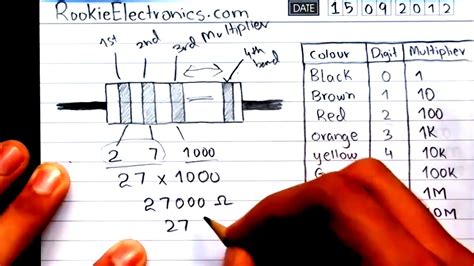 RookieElectronics.com
DATE 15 09 2012
1st 2nd 3rd Multiplier 4th band
2 7 1000
27 x 1000
27000 Ω
27
Colour Digit Multiplier
Black 0 1
Brown 1 10
Red 2 100
orange 3 1K
yellow 4 10K
G 100K
1M
10M